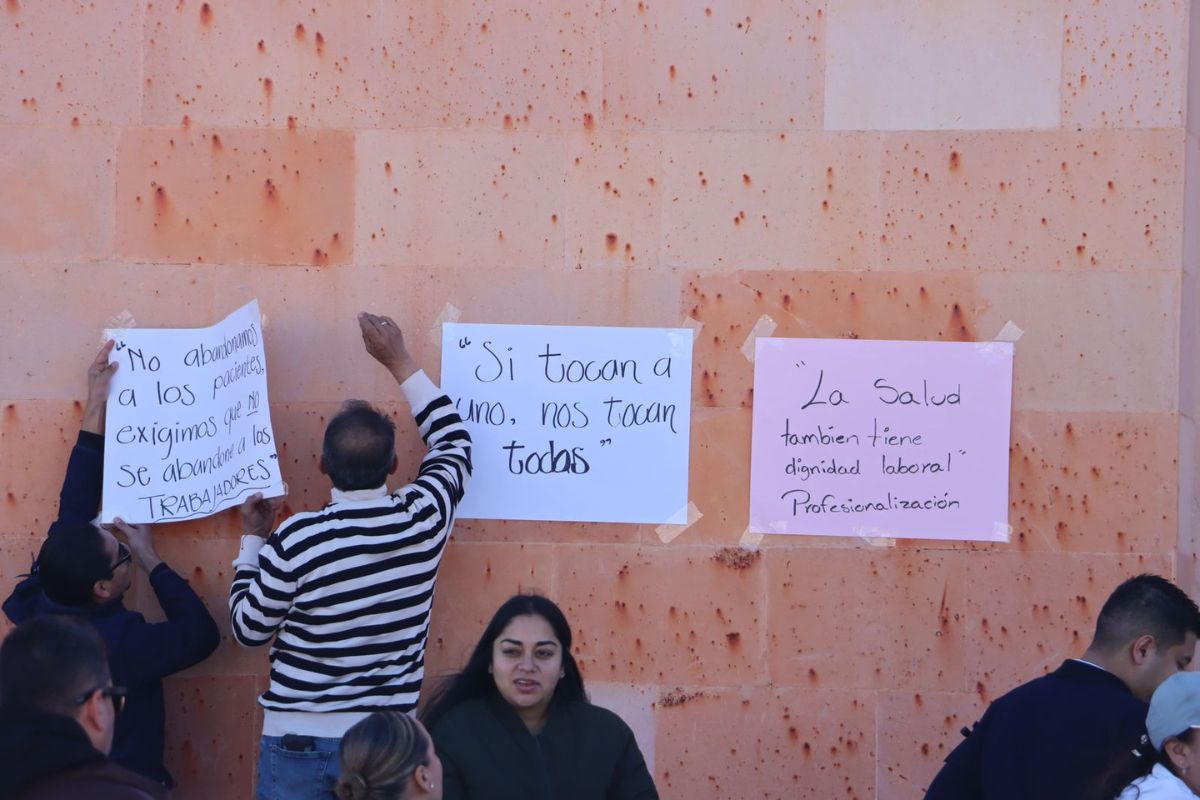 "No abandonamos
a los pacientes,
exigimos que no
se abandone a los
TRABAJADORES"
"Si tocan a
uno, nos tocan
todas"
"La Salud
tambien tiene
dignidad laboral"
Profesionalización